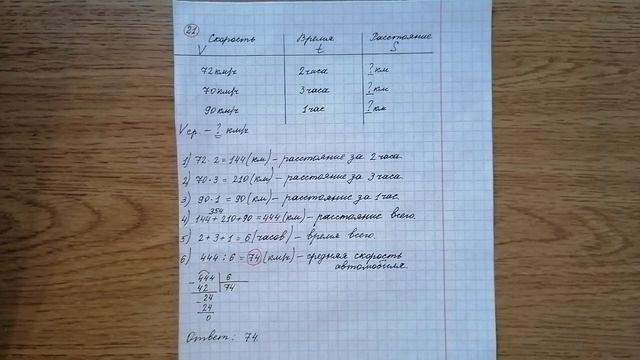 21
Скорость Время Расстояние
V t S
72 км/ч 2 часа ? км
70 км/ч 3 часа ? км
90 км/ч 1 час ? км
Vср. - ? км/ч
1) 72 · 2 = 144 (км) - расстояние за 2 часа.
2) 70 · 3 = 210 (км) - расстояние за 3 часа.
3) 90 · 1 = 90 (км) - расстояние за 1 час.
354
4) 144 + 210 + 90 = 444 (км) - расстояние всего.
5) 2 + 3 + 1 = 6 (часов) - время всего.
6) 444 : 6 = 74 (км/ч) - средняя скорость
автомобиля.
- 444 6
42 74
- 24
24
0
Ответ: 74